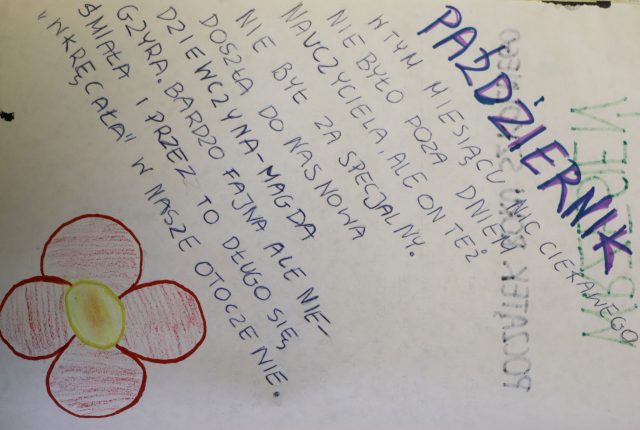 PAŹDZIERNIK
W TYM MIESIĄCU NIC CIEKAWEGO
NIE BYŁO POZA DNIEM
NAUCZYCIELA, ALE ON TEŻ
NIE BYŁ ZA SPECJALNY.
DOSZŁA DO NAS NOWA
DZIEWCZYNA-MAGDA
GZYRA. BARDZO FAJNA ALE NIE-
ŚMIAŁA I PRZEZ TO DŁUGO SIĘ
"WKRĘCAŁA" W NASZE OTOCZENIE.
WRZESIEŃ
POCZĄTEK ROKU SZKOLNEGO